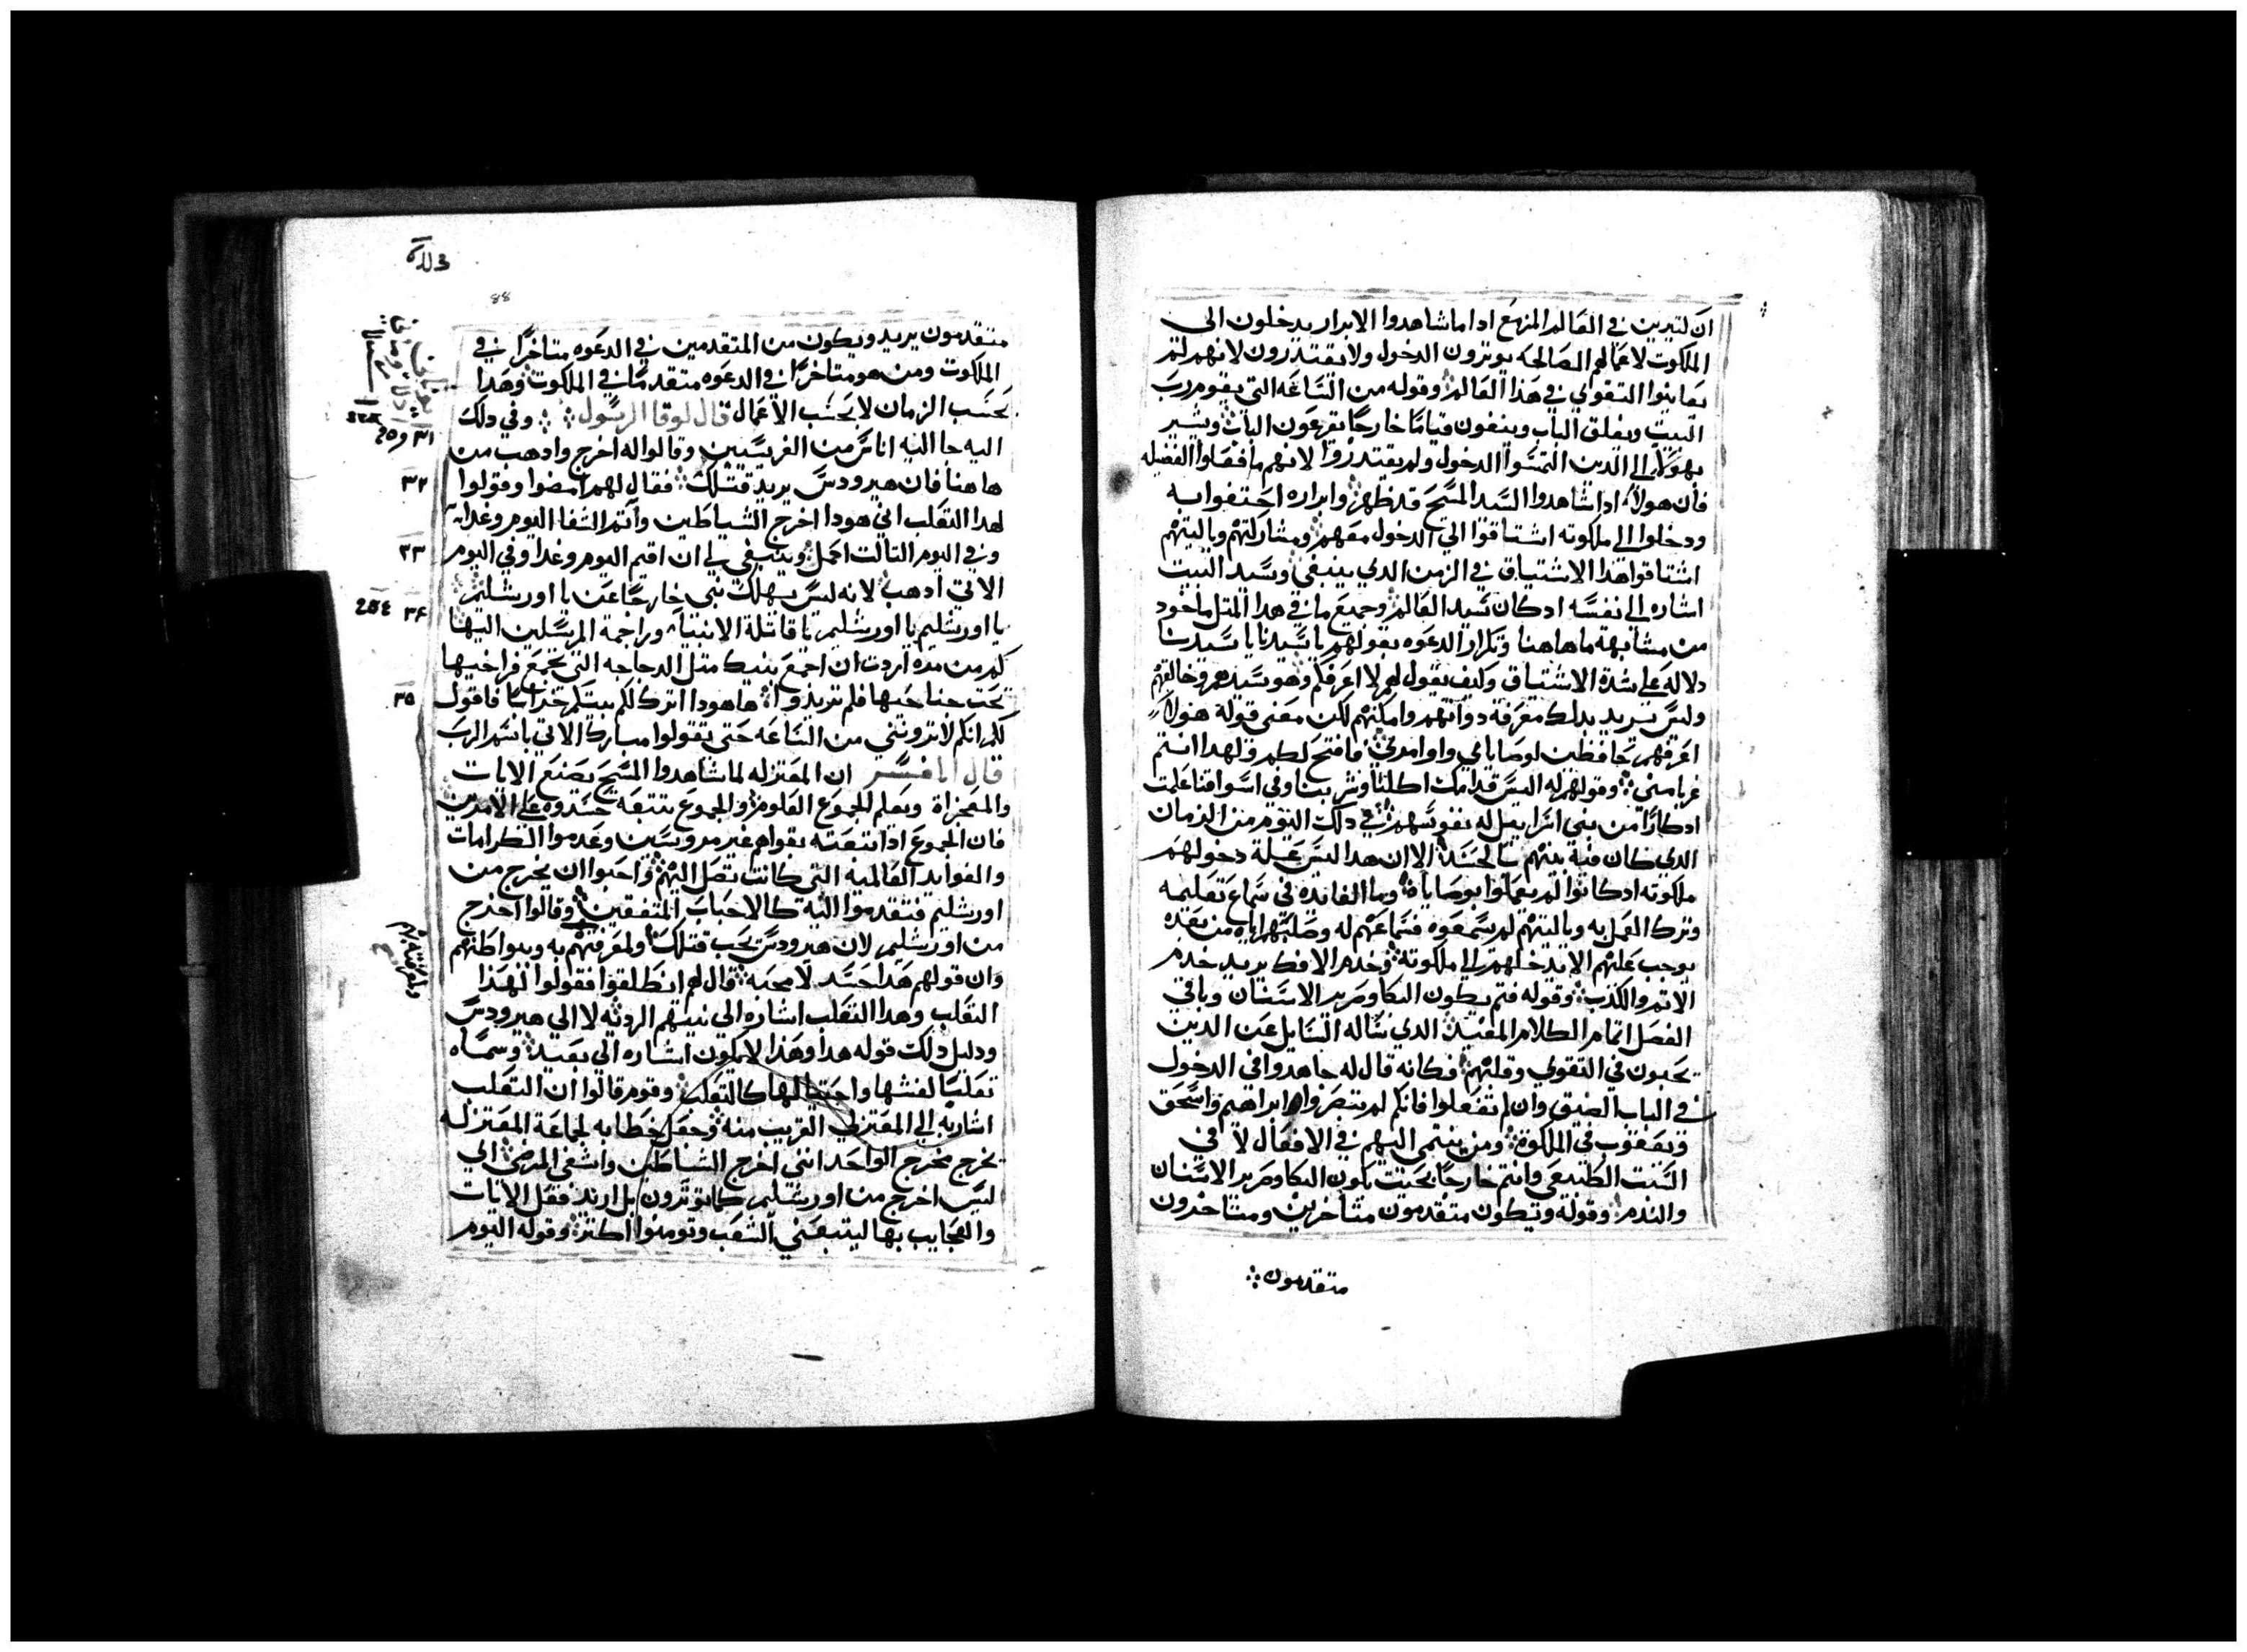 ان لتيرين في العالم المنهع اداما شاهدوا الابرار يدخلون الى
الملكوت لاعمالهم الصالحه يوترون الدخول ولا يقتدرون لانهم لم
يعانوا التقوي في هذا العالم وقوله من الساعه التي يقوم رب
البيت ويغلق الباب ويتفون قياما خارجا تقرعون الباب ويشير
بهولاء الي الدين التمسوا الدخول ولم يقتدروا لانهم ما فعلوا الفضيله
فان هولاء ادا شاهدوا السيد المسيح قد ظهر وابراره احتفوا به
ودخلوا الي ملكوته اشتاقوا الي الدخول معهم ومشاركتهم وياليتهم
اشتاقوا هدا الاشتياق في الزمن الدي ينبغي وسيد البيت
اشاره الي نفسه ادكان سيد العالم وجميع ما في هدا المتل ماخود
من مشابهة ماهاهنا وتكرار الدعوه بقولهم يا سيدنا يا سيدنا
دلاله علي شدة الاشتياق وكيف يقول لهم لا اعرفكم وهو سيدهم وخالقهم
وليس يريد بدلك معرفة دواتهم وامكنتهم لكن معني قوله هولاء
اعرفهم حافظين لوصاياي واوامري فافتح لهم ولهدا انتم
غربا مني وقولهم له اليس قدامك اكلنا وشربنا وفي اسواقنا علمت
ادكارا من بني اسراييل له نفوسهم في دلك اليوم من الزمان
الدي كان فيه بينهم بالجسد الا ان هدا ليس علة دخولهم
ملكوته ادكانوا لم يعملوا بوصاياه وما الفايده في سماع تعليمه
وترك العمل به وياليتهم لم يسمعوه فسماعهم له وصلبهم اياه من بعده
يوجب عليهم الا يدخلهم الي ملكوته وخدم الافك يريد خدم
الاتم والكدب وقوله فتم يكون البكا وصرير الاسنان وباقي
الفصل اتمام الكلام المفيد الدي ساله السايل عن الدين
يحبون في التقوي وقلتهم فكانه قال له جاهدوا في الدخول
في الباب الضيق وان لم تفعلوا فانكم لم تبصروا ابراهيم واسحق
ويعقوب في الملكوة ومن ينتمي اليهم في الافعال لا في
النسب الطبيعي وانتم خارجا بحيت يكون البكا وصرير الاسنان
والندم وقوله ويكون متقدمون متاخرين ومتاخرون
متقدمون
88
متقدمون يريد ويكون من المتقدمين في الدعوه متاخرا في
الملكوت ومن هو متاخرا في الدعوه متقدما في الملكوت وهدا
بحسب الزمان لا بحسب الاعمال قال لوقا الرسول وفي دلك
٣١
اليه جا اليه اناس من الفريسيين وقالوا له اخرج وادهب من
هاهنا فان هيرودس يريد قتلك فقال لهم امضوا وقولوا
٣٢
لهدا التعلب اني هودا اخرج الشياطين واتم الشفا اليوم وغدا
وفي اليوم التالت اكمل وينبغي لي ان اقيم اليوم وغدا وفي اليوم
٣٣
الاتي ادهب لانه ليس يهلك نبي خارجا عن يا اورشليم
٣٤
يا اورشليم يا اورشليم يا قاتلة الانبيا وراجمة المرسلين اليها
كم من مره اردت ان اجمع بنيك متل الدجاجه التي تجمع فراخيها
تحت جناحيها فلم تريدوا هاهودا اترك لكم بيتكم خرابا فاقول
٣٥
لكم انكم لاتروني من الساعه حتي تقولوا مبارك الاتي باسم الرب
قال المفسر ان المعتزله لما شاهدوا المسيح يصنع الايات
والمعجزاة ويعلم الجموع العلوم والجموع تتبعه حسدوه علي الامرين
فان الجموع ادا تبعته بقواهم غير مروسين وعدموا الكرامات
والفوايد العالميه التي كانت تصل اليهم واحبوا ان يخرج من
اورشليم فتقدموا اليه كالاحباب المتفقين وقالوا اخرج
من اورشليم لان هيرودس يحب قتلك ولمعرفتهم به وبواطنهم
وان قولهم هدا حسد لا محبه قال لهم انطلقوا فقولوا لهدا
التعلب وهدا التعلب اشاره الي نيتهم الرديه لا الي هيرودس
ودليل دلك قوله هدا وهدا لا يكون اشاره الي بعيد وسماه
تعلبا لغشها واحتيالها كالتعلب وقوم قالوا ان التعلب
اشار به الي المعتزلي القريب منه وجعل خطابه لجماعة المعتزله
يخرج مخرج الواحد انني اخرج الشياطين واشفي المرضي اي
ليس اخرج من اورشليم كما توترون بل اريد فعل الايات
والعجايب بها ليتبعني الشعب وتومنوا اكتر وقوله اليوم